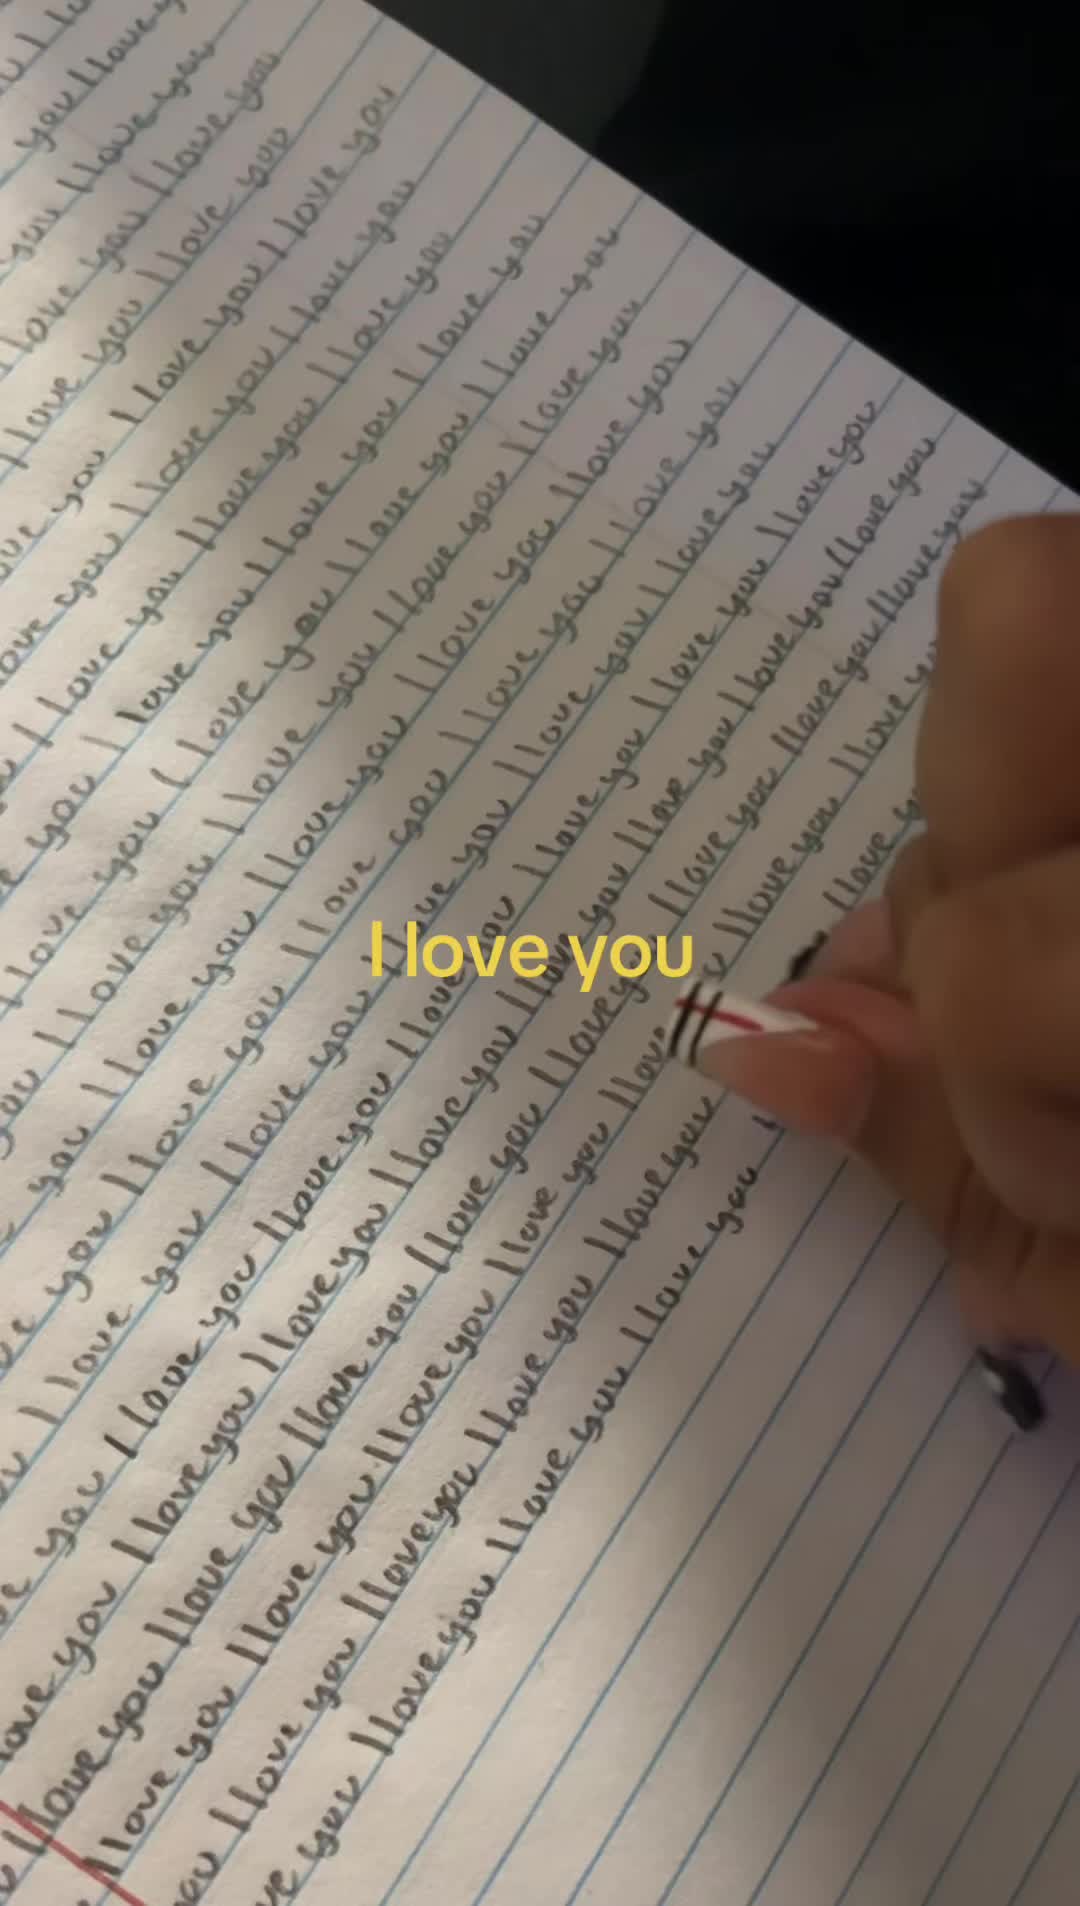 I lo
you I love y
you I love you
I love you I love you
I love you I love you
you I love you I love you
love you I love you I love you
I love you I love you I love you
you I love you I love you I love you
I love you I love you I love you I love you
I love you I love you I love you I love you
you I love you I love you I love you I love you
you I love you I love you I love you I love you
you I love you I love you I love you I love you I love you
you I love you I love you I love you I love you I love you I love you
love you I love you I love you I love you I love you I love you I love you I love you
I love you I love you I love you I love you I love you I love you I love you I love you
I love you I love you I love you I love you I love you I love
you I love you I love you I love you I love you I love
you I love you I love you I love you
I love you